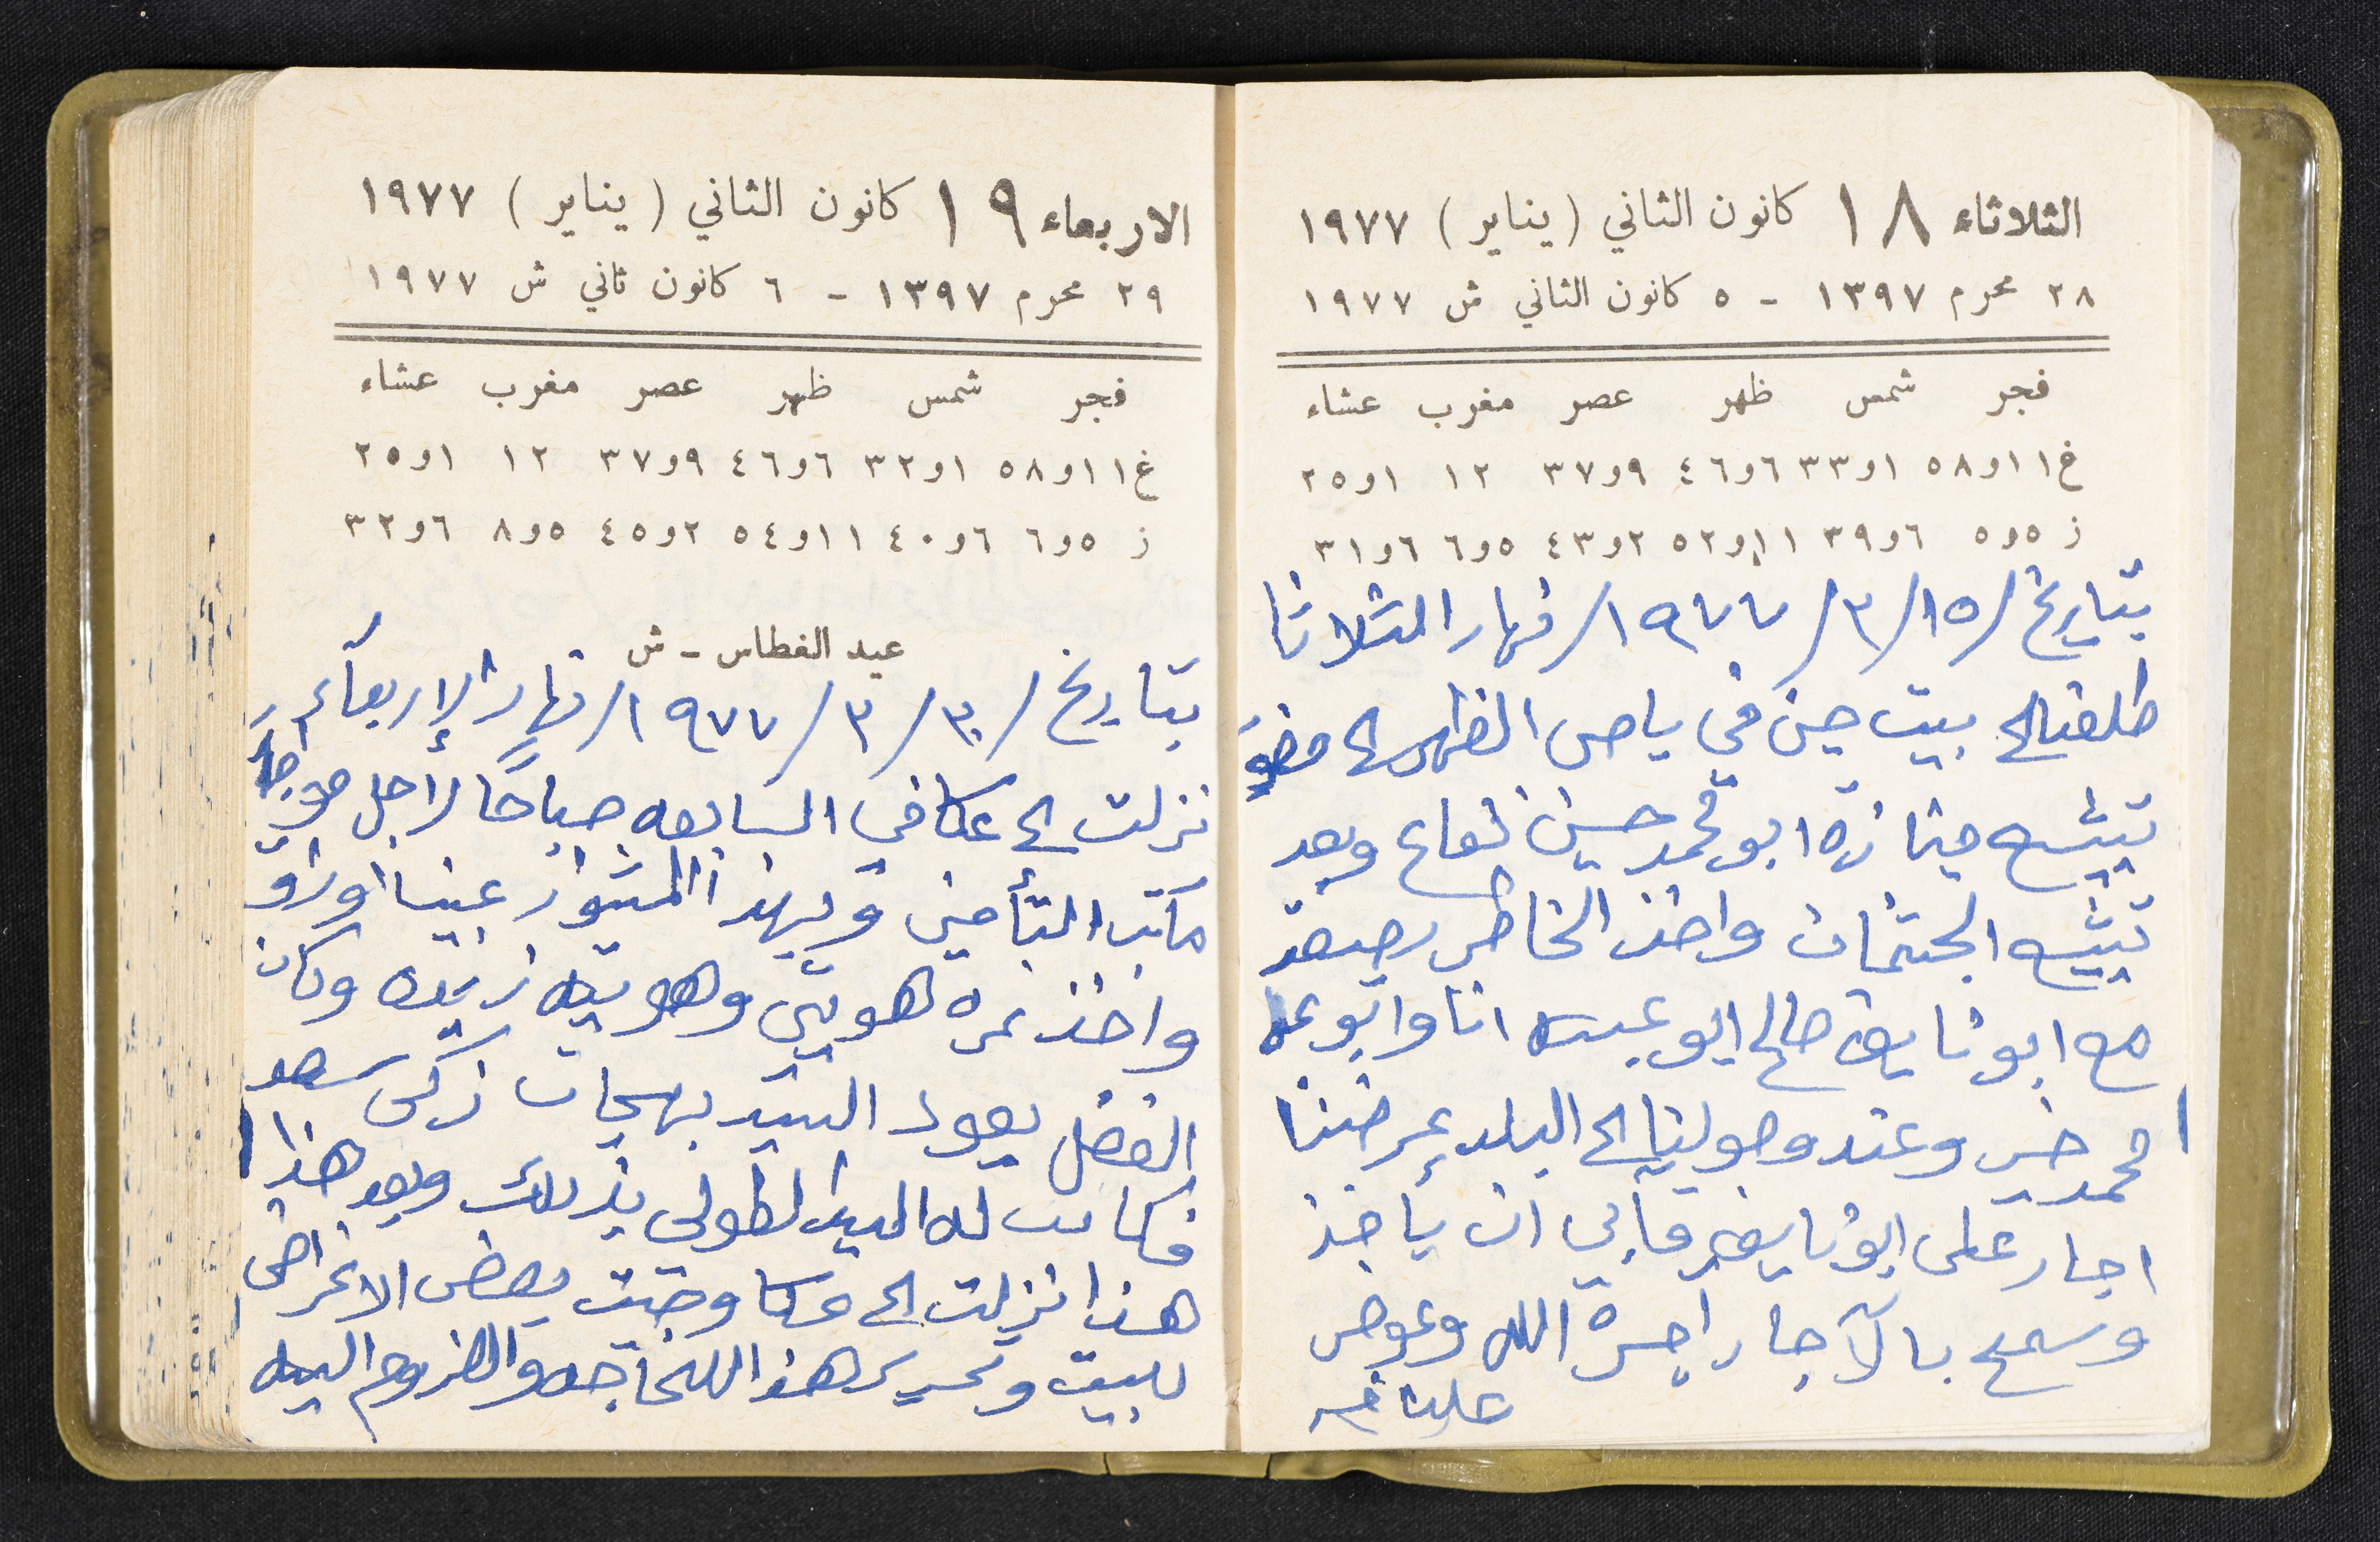 الثلاثاء ١٨ كانون الثاني (يناير) ١٩٧٧
٢٨ محرم ١٣٩٧ - ٥ كانون الثاني ش ١٩٧٧
فجر شمس ظهر عصر مغرب عشاء
غ ١١و٥٨ ١و٣٣ ٦و٤٦ ٩و٣٧ ١٢ ١و٢٥
ز ٥و٥ ٦و٣٩ ١١و٥٢ ٢و٤٣ ٥و٦ ٦و٣١
بتاريخ /١٥/٣/١٩٧٧/ نهار الثلاثا
طلقنا الى بيت جن في ياص الظهر الى
تيشيع جنازة ابو محمد حسين وبعد
تيشيع الجثمان واخذ الخاطر رجعة
مع ابو نايف صالح ابو انا وابو علي
محمد خير وعند وصولينا الى البلد عرضنا
اجار على ابو نايف فأبى ان ياخذ
وسمح بالآجار اجرة الله وعوض
علينا منه
الاربعاء ١٩ كانون الثاني (يناير) ١٩٧٧
٢٩ محرم ١٣٩٧ - ٦ كانون ثاني ش ١٩٧٧
فجر شمس ظهر عصر مغرب عشاء
غ ١١و٥٨ ١و٣٢ ٦و٤٦ ٩و٣٧ ١٢ ١و٢٥
ز ٥و٦ ٦و٤٠ ١١و٥٤ ٢و٤٥ ٥و٨ ٦و٣٣
عيد الغطاس - ش
بتاريخ /٣٠/٣/١٩٧٧/ نهار الإربعاء
نزلت الى عكا في السابعه صباحًا لاجل
مكتب التأمين وبهذا المشوار عبينا اوراق
واخذ نمره هويتي وهويته زينه وكان
الفضل يعود السيد بهجات زكي سعد
فكانت له اليد الطولى بذلك وبعد هذا
هذا نزلت الى عكا وجبت بعض الاغراض
للبيت وتحرير هذا اللحاجه والضروم اليه